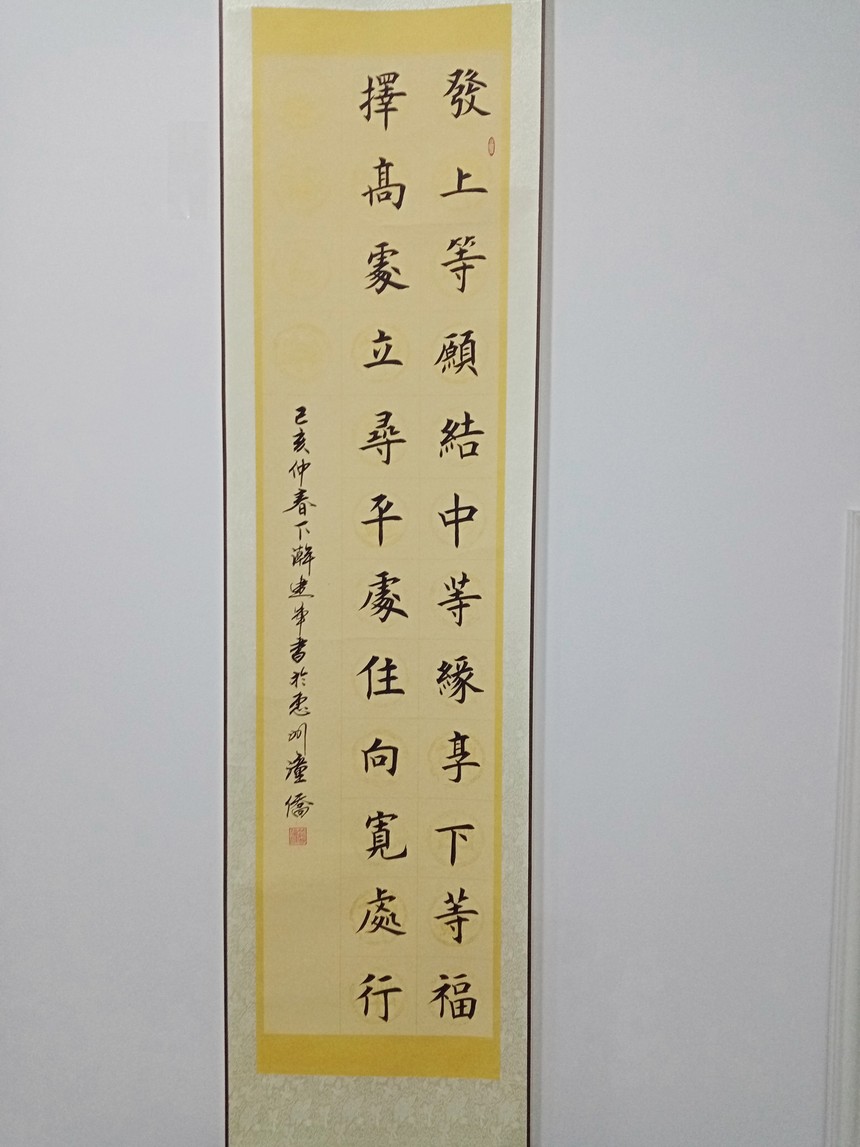 發上等願結中等緣享下等福
擇高處立尋平處住向寬處行
己亥仲春下澣建軍書於惠州潼僑